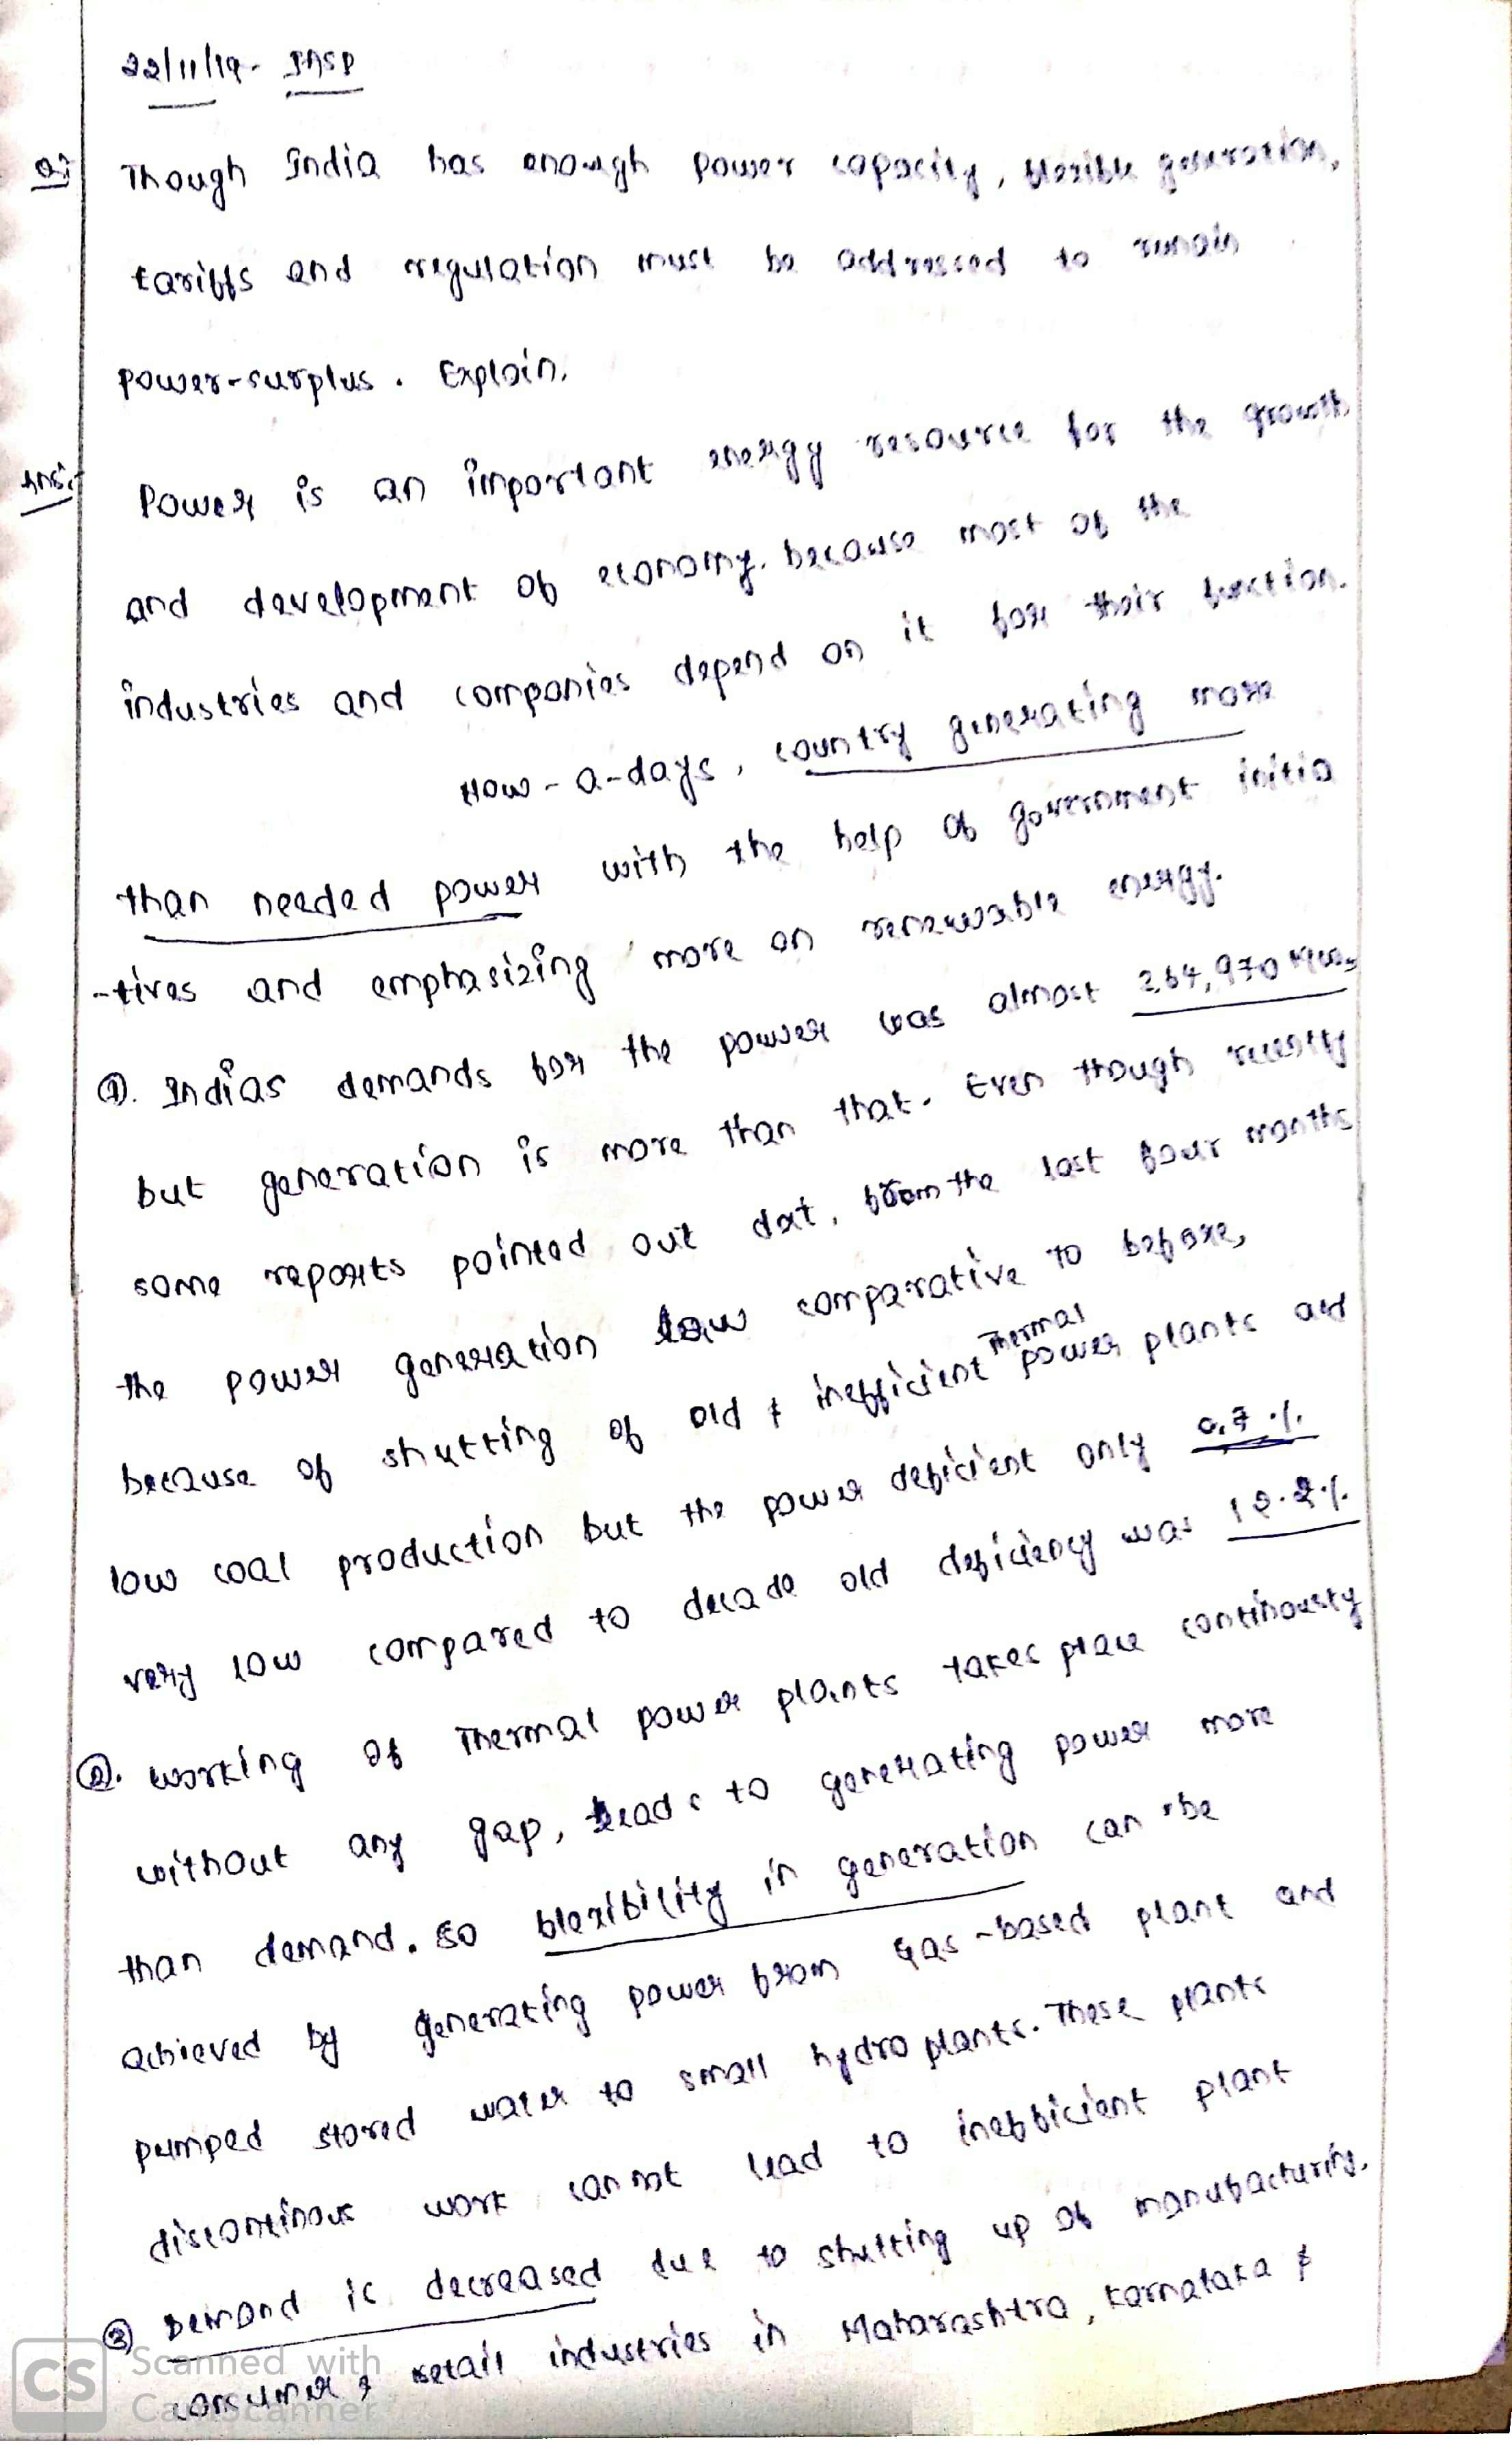 22/11/19- IASP
Q:- Though India has enough power capacity, flexible generation,
tariffs and regulation must be addressed to remain
power-surplus. Explain.
Ans:- Power is an important energy resource for the growth
and development of economy. because most of the
industries and companies depend on it for their function.
Now-a-days, country generating more
than needed power with the help of government initia
-tives and emphasizing more on renewable energy.
①. Indias demands for the power was almost 2,64,970
but generation is more than that. Even though recently
some reports pointed out dat, from the last four months
the power generation low comparative to before,
because of shutting of old & inefficient Thermal power plants and
low coal production but the power deficient only 0.7%
very low compared to decade old deficiency was
②. working of Thermal power plants takes place continously
without any gap, leads to generating power more
than demand. so flexibility in generation can be
achieved by generating power from Gas-based plant and
pumped stored water to small hydro plants. These plants
discontinous work cannot lead to inefficient plant
③ Demand is decreased due to shutting up of manufacturing,
consumer & retail industries in Maharashtra, Karnataka &
CS Scanned with
CamScanner